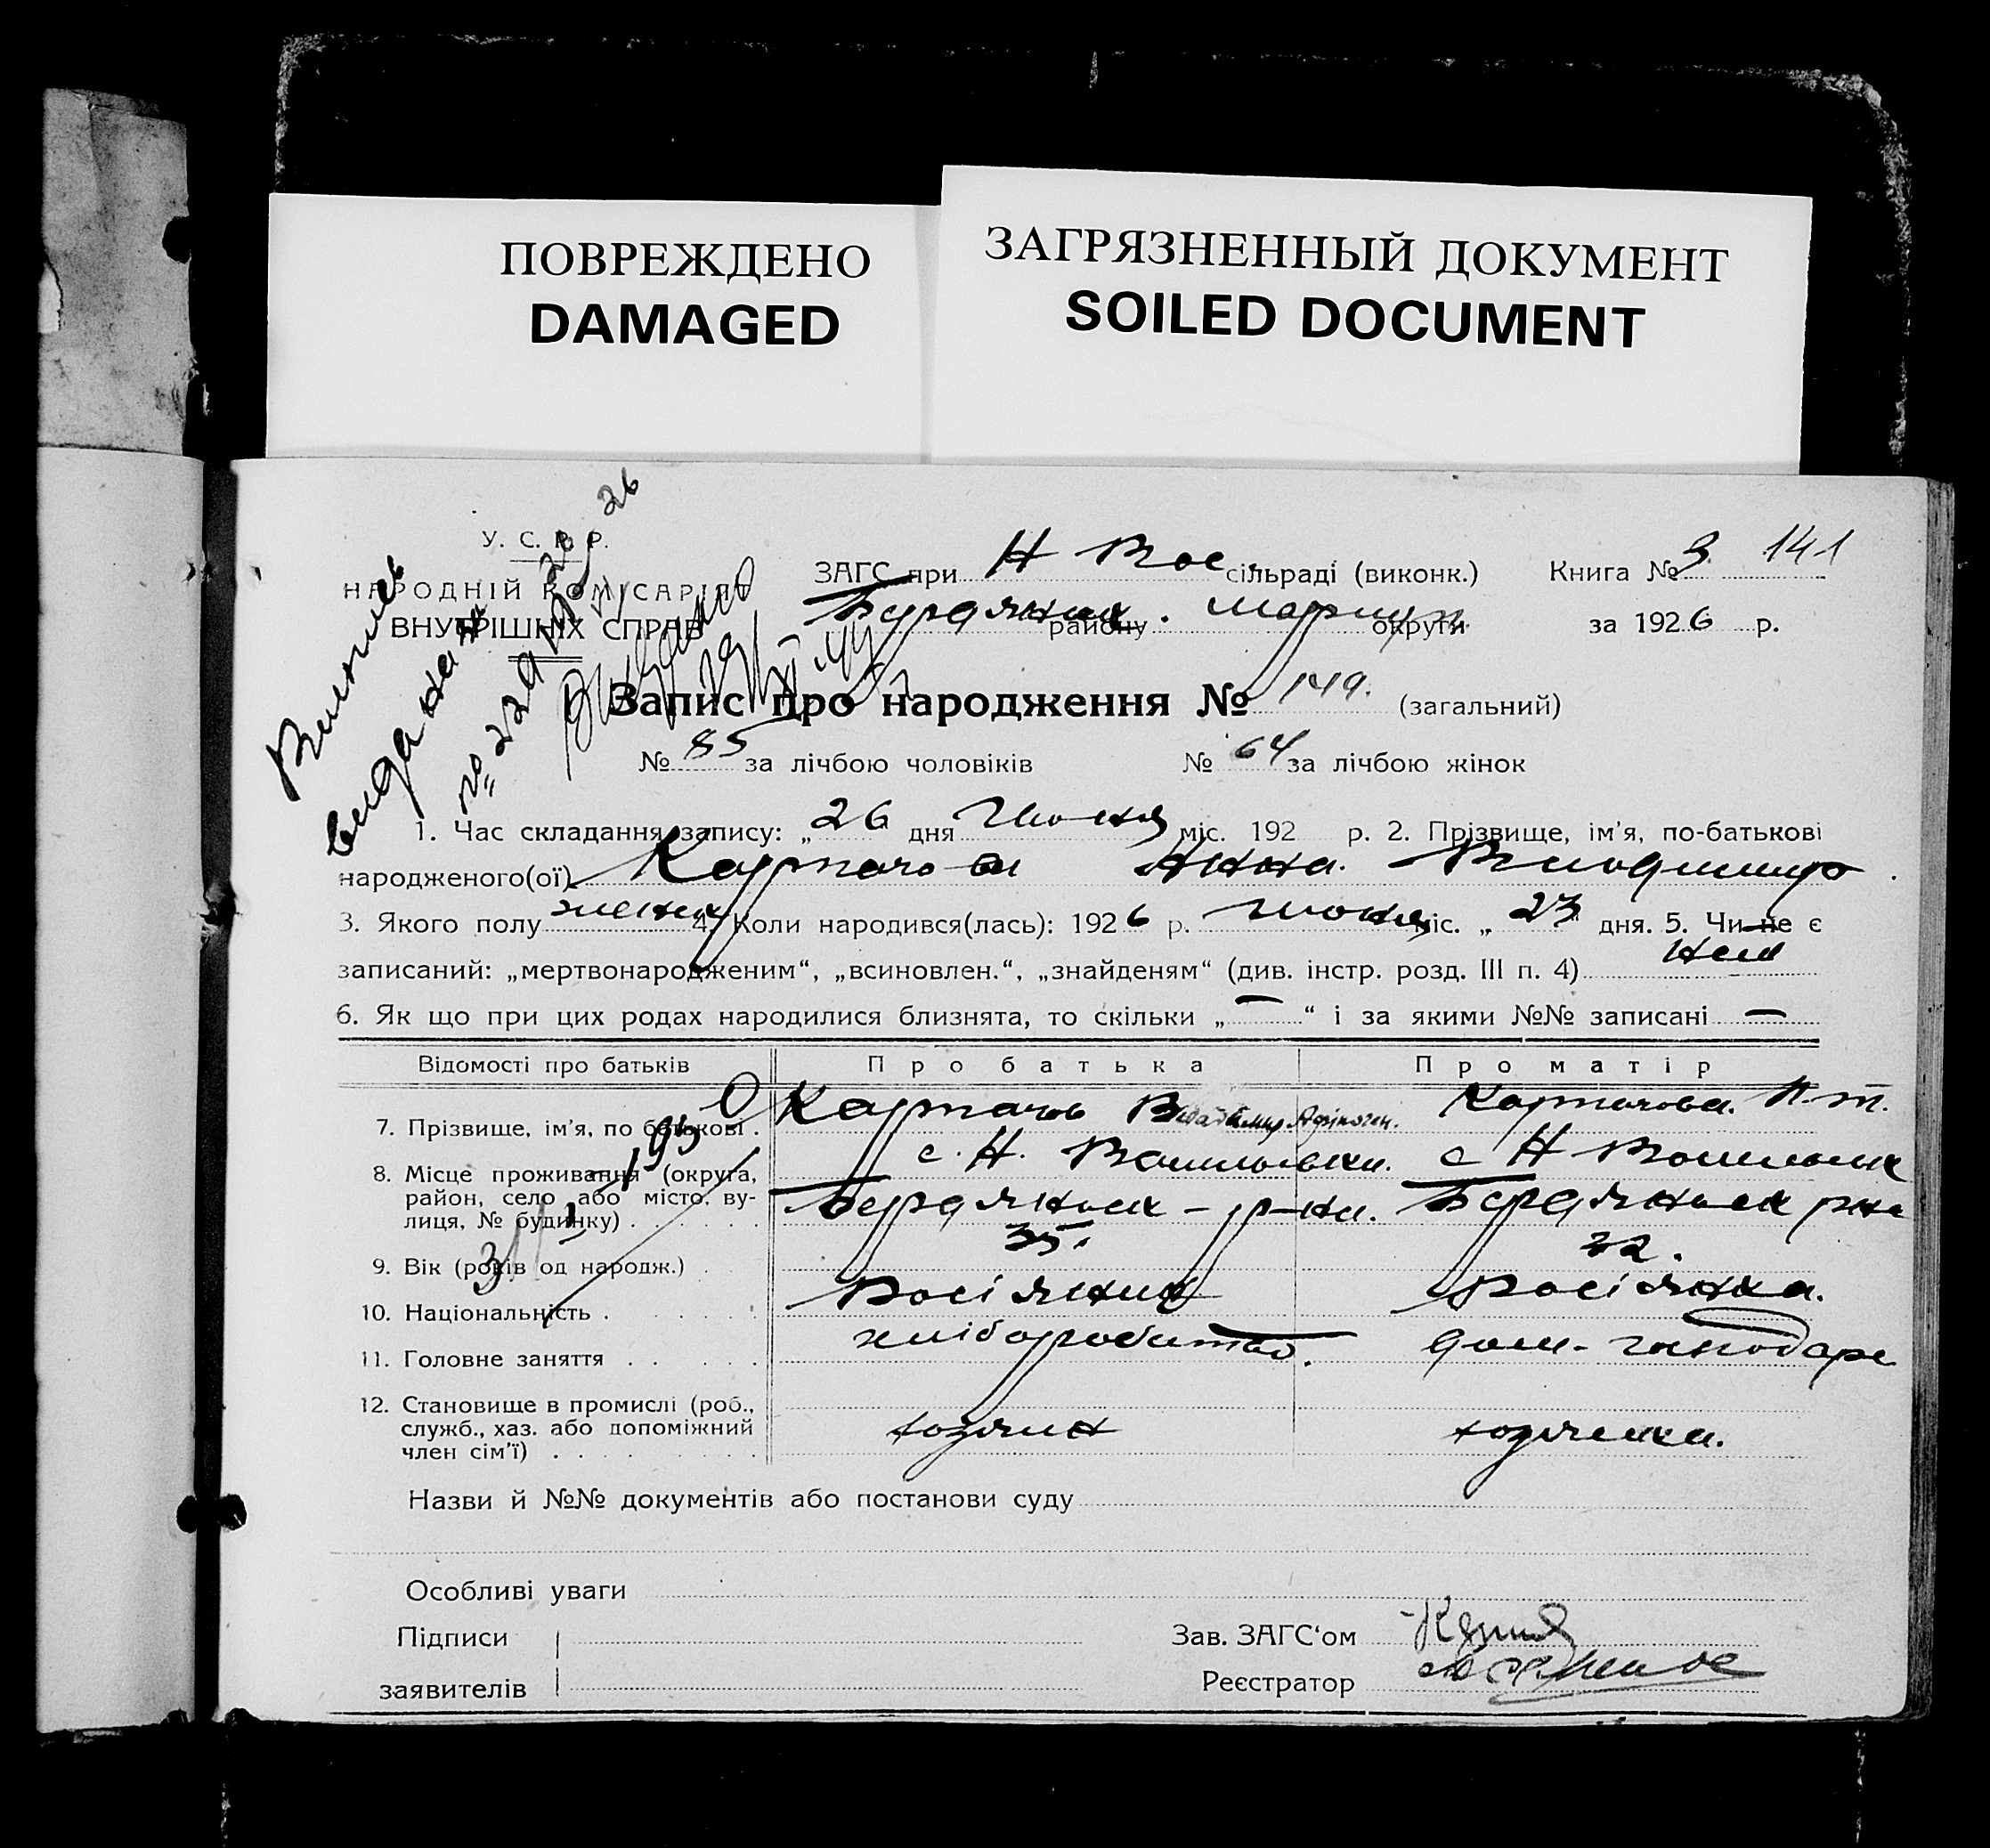 ПОВРЕЖДЕНО
DAMAGED
ЗАГРЯЗНЕННЫЙ ДОКУМЕНТ
SOILED DOCUMENT
У. С. Р. Р.
НАРОДНІЙ КОМІСАРІЯТ
ВНУТРІШНІХ СПРАВ
ЗАГС при Н Вас сільраді (виконк.)
Бердянск. району Мариуп. округи
Книга № 3 141
за 1926 р.
Запис про народження № 149. (загальний)
№ 85 за лічбою чоловіків № 64 за лічбою жінок
1. Час складання запису: „26 дня Июня міс. 192 р. 2. Прізвище, ім’я, по-батькові
народженого(ої) Карпачова Анна.
3. Якого полу женск 4. Коли народився(лась): 1926 р. июня міс. „23“ дня. 5. Чи не є
записаний: „мертвонародженим“, „всиновлен.“, „знайденям“ (див. інстр. розд. III п. 4) нет
6. Як що при цих родах народилися близнята, то скільки „—“ і за якими №№ записані —
Відомості про батьків Про батька Про матір
7. Прізвище, ім’я, по батькові . Карпачов Владимир Карпачова.
8. Місце проживання (округа, район, село або місто, вулиця, № будинку) с. Н. Васильевки. с Н Васильевк
Бердянськ р-на. Бердянськ рна
9. Вік (років од народж.) . 35. 22.
10. Національність . Росіянин Росіянка.
11. Головне заняття . . хліборобство. дом. господарс
12. Становище в промислі (роб., служб., хаз. або допоміжний член сім’ї) хозяин хозяйка.
Назви й №№ документів або постанови суду
Особливі уваги
Підписи
заявителів
Зав. ЗАГС‘ом
Реєстратор
Випись
видана